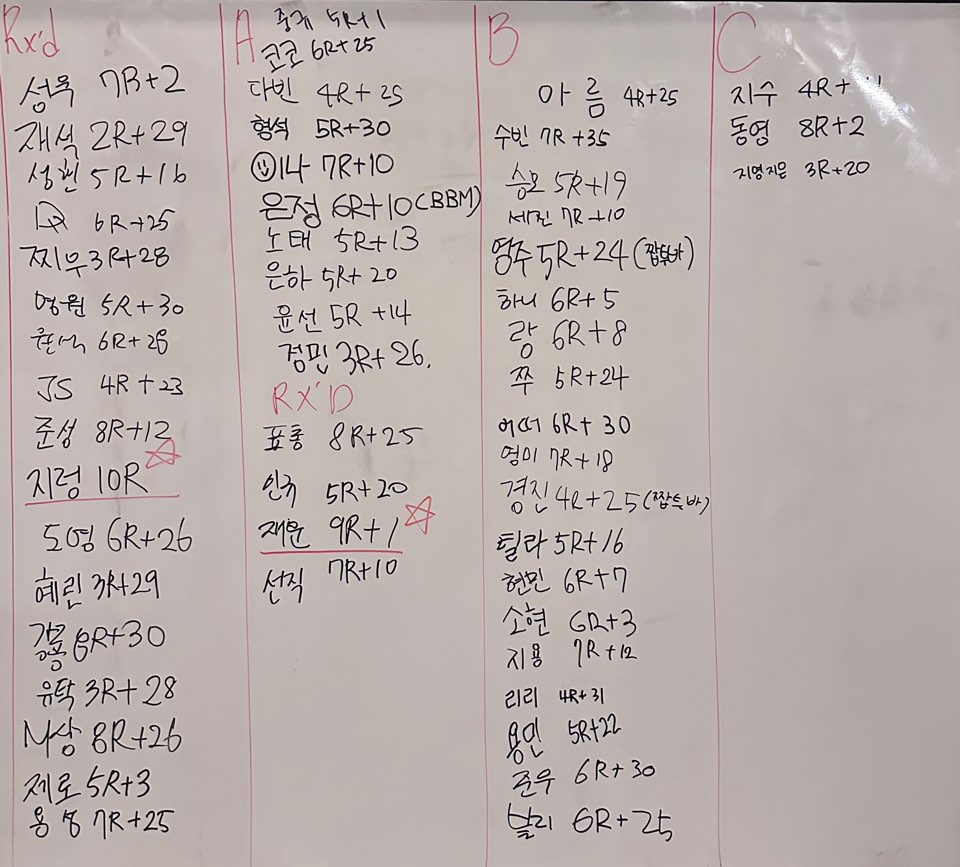 Rx'd
성욱 7R+2
재석 2R+29
성빈 5R+16
6R+25
찌우 3R+28
영원 5R+30
6R+28
JS 4R+23
준성 8R+12
지렁 10R
도영 6R+26
혜린 3R+29
강용 6R+30
유탁 3R+28
M상 8R+26
제로 5R+3
용성 7R+25
A
5R+1
코코 6R+25
다빈 4R+25
형석 5R+30
나 7R+10
은정 6R+10(BBM)
노태 5R+13
은하 5R+20
윤선 5R+14
경민 3R+26.
RX'D
표통 8R+25
인국 5R+20
재윤 9R+1
선직 7R+10
B
아름 4R+25
수빈 7R+35
승모 5R+19
세진 7R+10
영주 5R+24(짭투바)
하니 6R+5
랑 6R+8
쭈 5R+24
어떠 6R+30
영미 7R+18
경진 4R+25(짭투바)
틸라 5R+16
현민 6R+7
소현 6R+3
지용 7R+12
리리 4R+31
용인 5R+22
준우 6R+30
발리 6R+25
C
지수 4R+
동영 8R+2
지영지은 3R+20